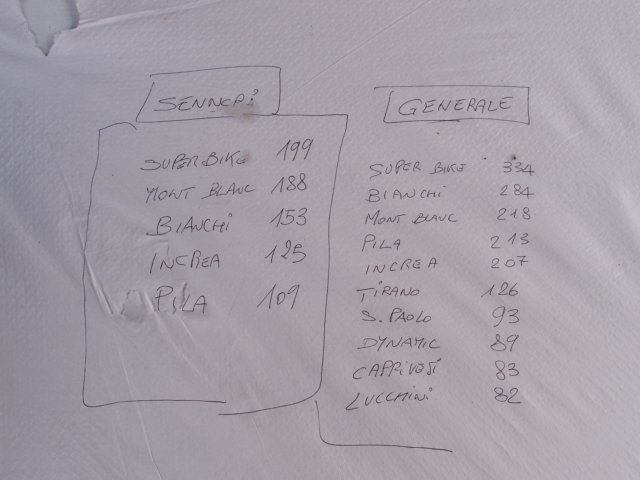 SUPERBIKE 199
MONT BLANC 188
BIANCHI 153
INCREA 125
PILA 109
GENERALE
SUPER BIKE 334
BIANCHI 284
MONT BLANC 218
PILA 213
INCREA 207
TIRANO 126
S. PAOLO 93
DYNAMIC 89
CAPRIVESI 83
LUCCHINI 82